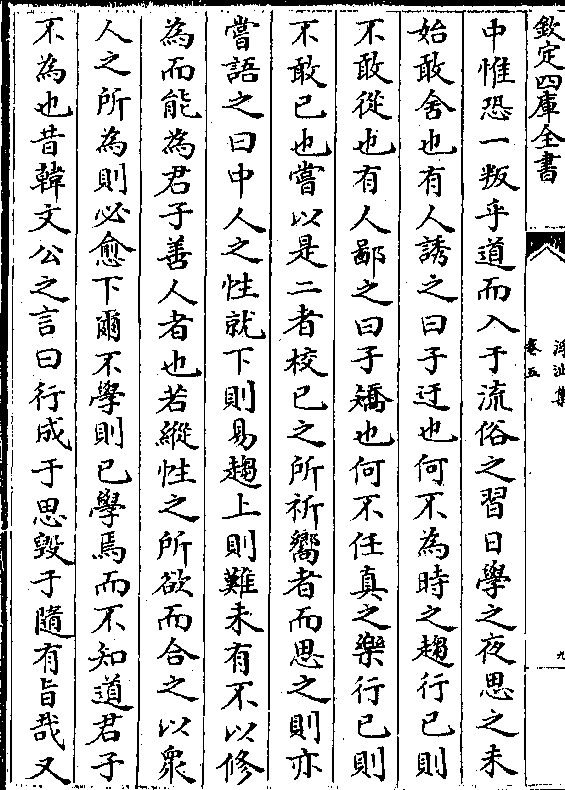 欽定四庫全書
浮沚集
卷五
九
中惟恐一叛乎道而入于流俗之習日學之夜思之未
始敢舍也有人誘之曰子迂也何不為時之趨行已則
不敢從也有人鄙之曰子矯也何不任真之樂行已則
不敢已也嘗以是二者校已之所祈嚮者而思之則亦
嘗語之曰中人之性就下則易趨上則難未有不以修
為而能為君子善人者也若縱性之所欲而合之以衆
人之所為則必愈下爾不學則已學焉而不知道君子
不為也昔韓文公之言曰行成于思毀于隨有旨哉又